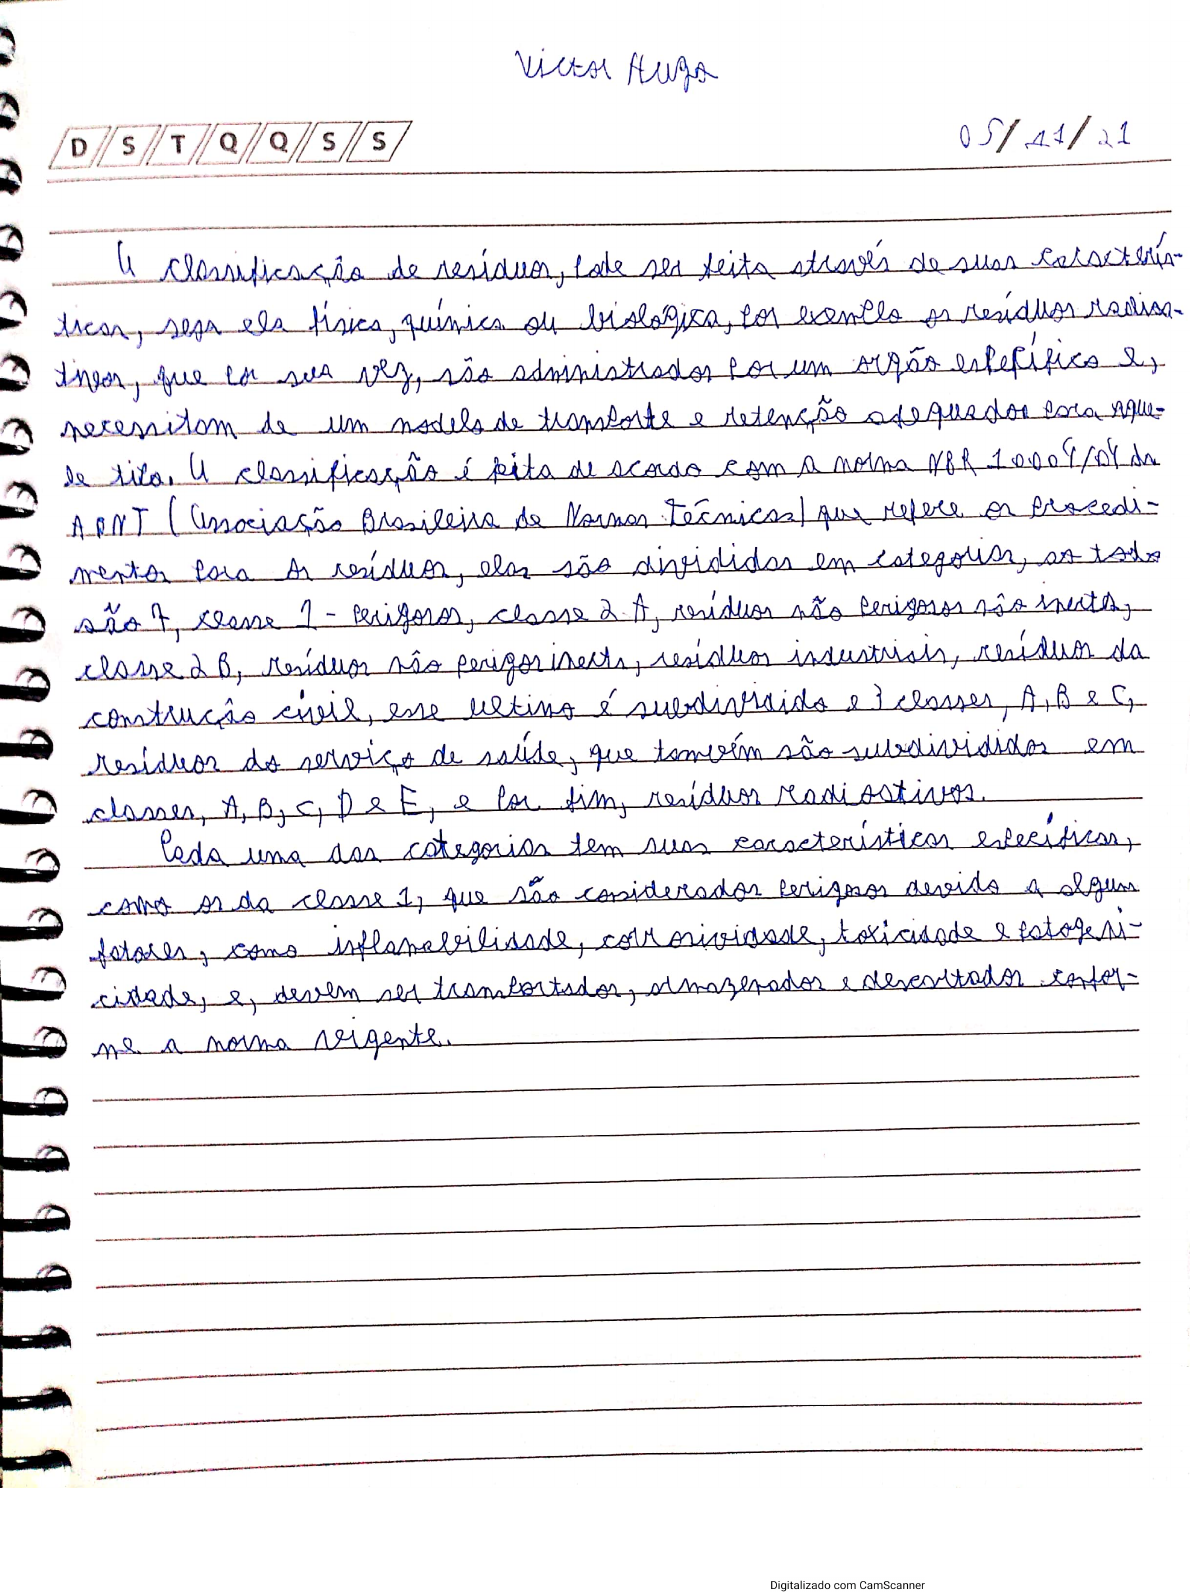 Victor Hugo
D S T Q Q S S 05/11/21
A classificação de resíduos, pode ser feita através de suas caracterís-
ticas, seja ela física, química ou biológica, por exemplo os resíduos radioa-
tivos, que por sua vez, são administrados por um orgão específico e,
necessitam de um modelo de transporte e retenção adequados para aque-
le tipo. A classificação é feita de acordo com a norma NBR 10.004/04 da
ABNT (Associação Brasileira de Normas Técnicas) que refere os procedi-
mentos para os resíduos, elas são divididas em categorias, ao todo
são 7, classe 1 - perigosos, classe 2 A, resíduos não perigosos não inertes,
classe 2 B, resíduos não perigos inerts, resíduos industriais, resíduos da
construcão civil, esse ultimo é subdividido e 3 classes, A, B e C,
resíduos do serviço de saúde, que também são subdivididos em
classes, A, B, C, D e E, e por fim, resíduos radioativos.
Cada uma das categorias tem suas características específicas,
como os da classe 1, que são considerados perigosos devido a alguns
fatores, como inflamabilidade, corrosividade, toxicidade e patogeni-
cidade, e, devem ser transportados, armazenados e descartados confor-
me a norma vigente.
Digitalizado com CamScanner